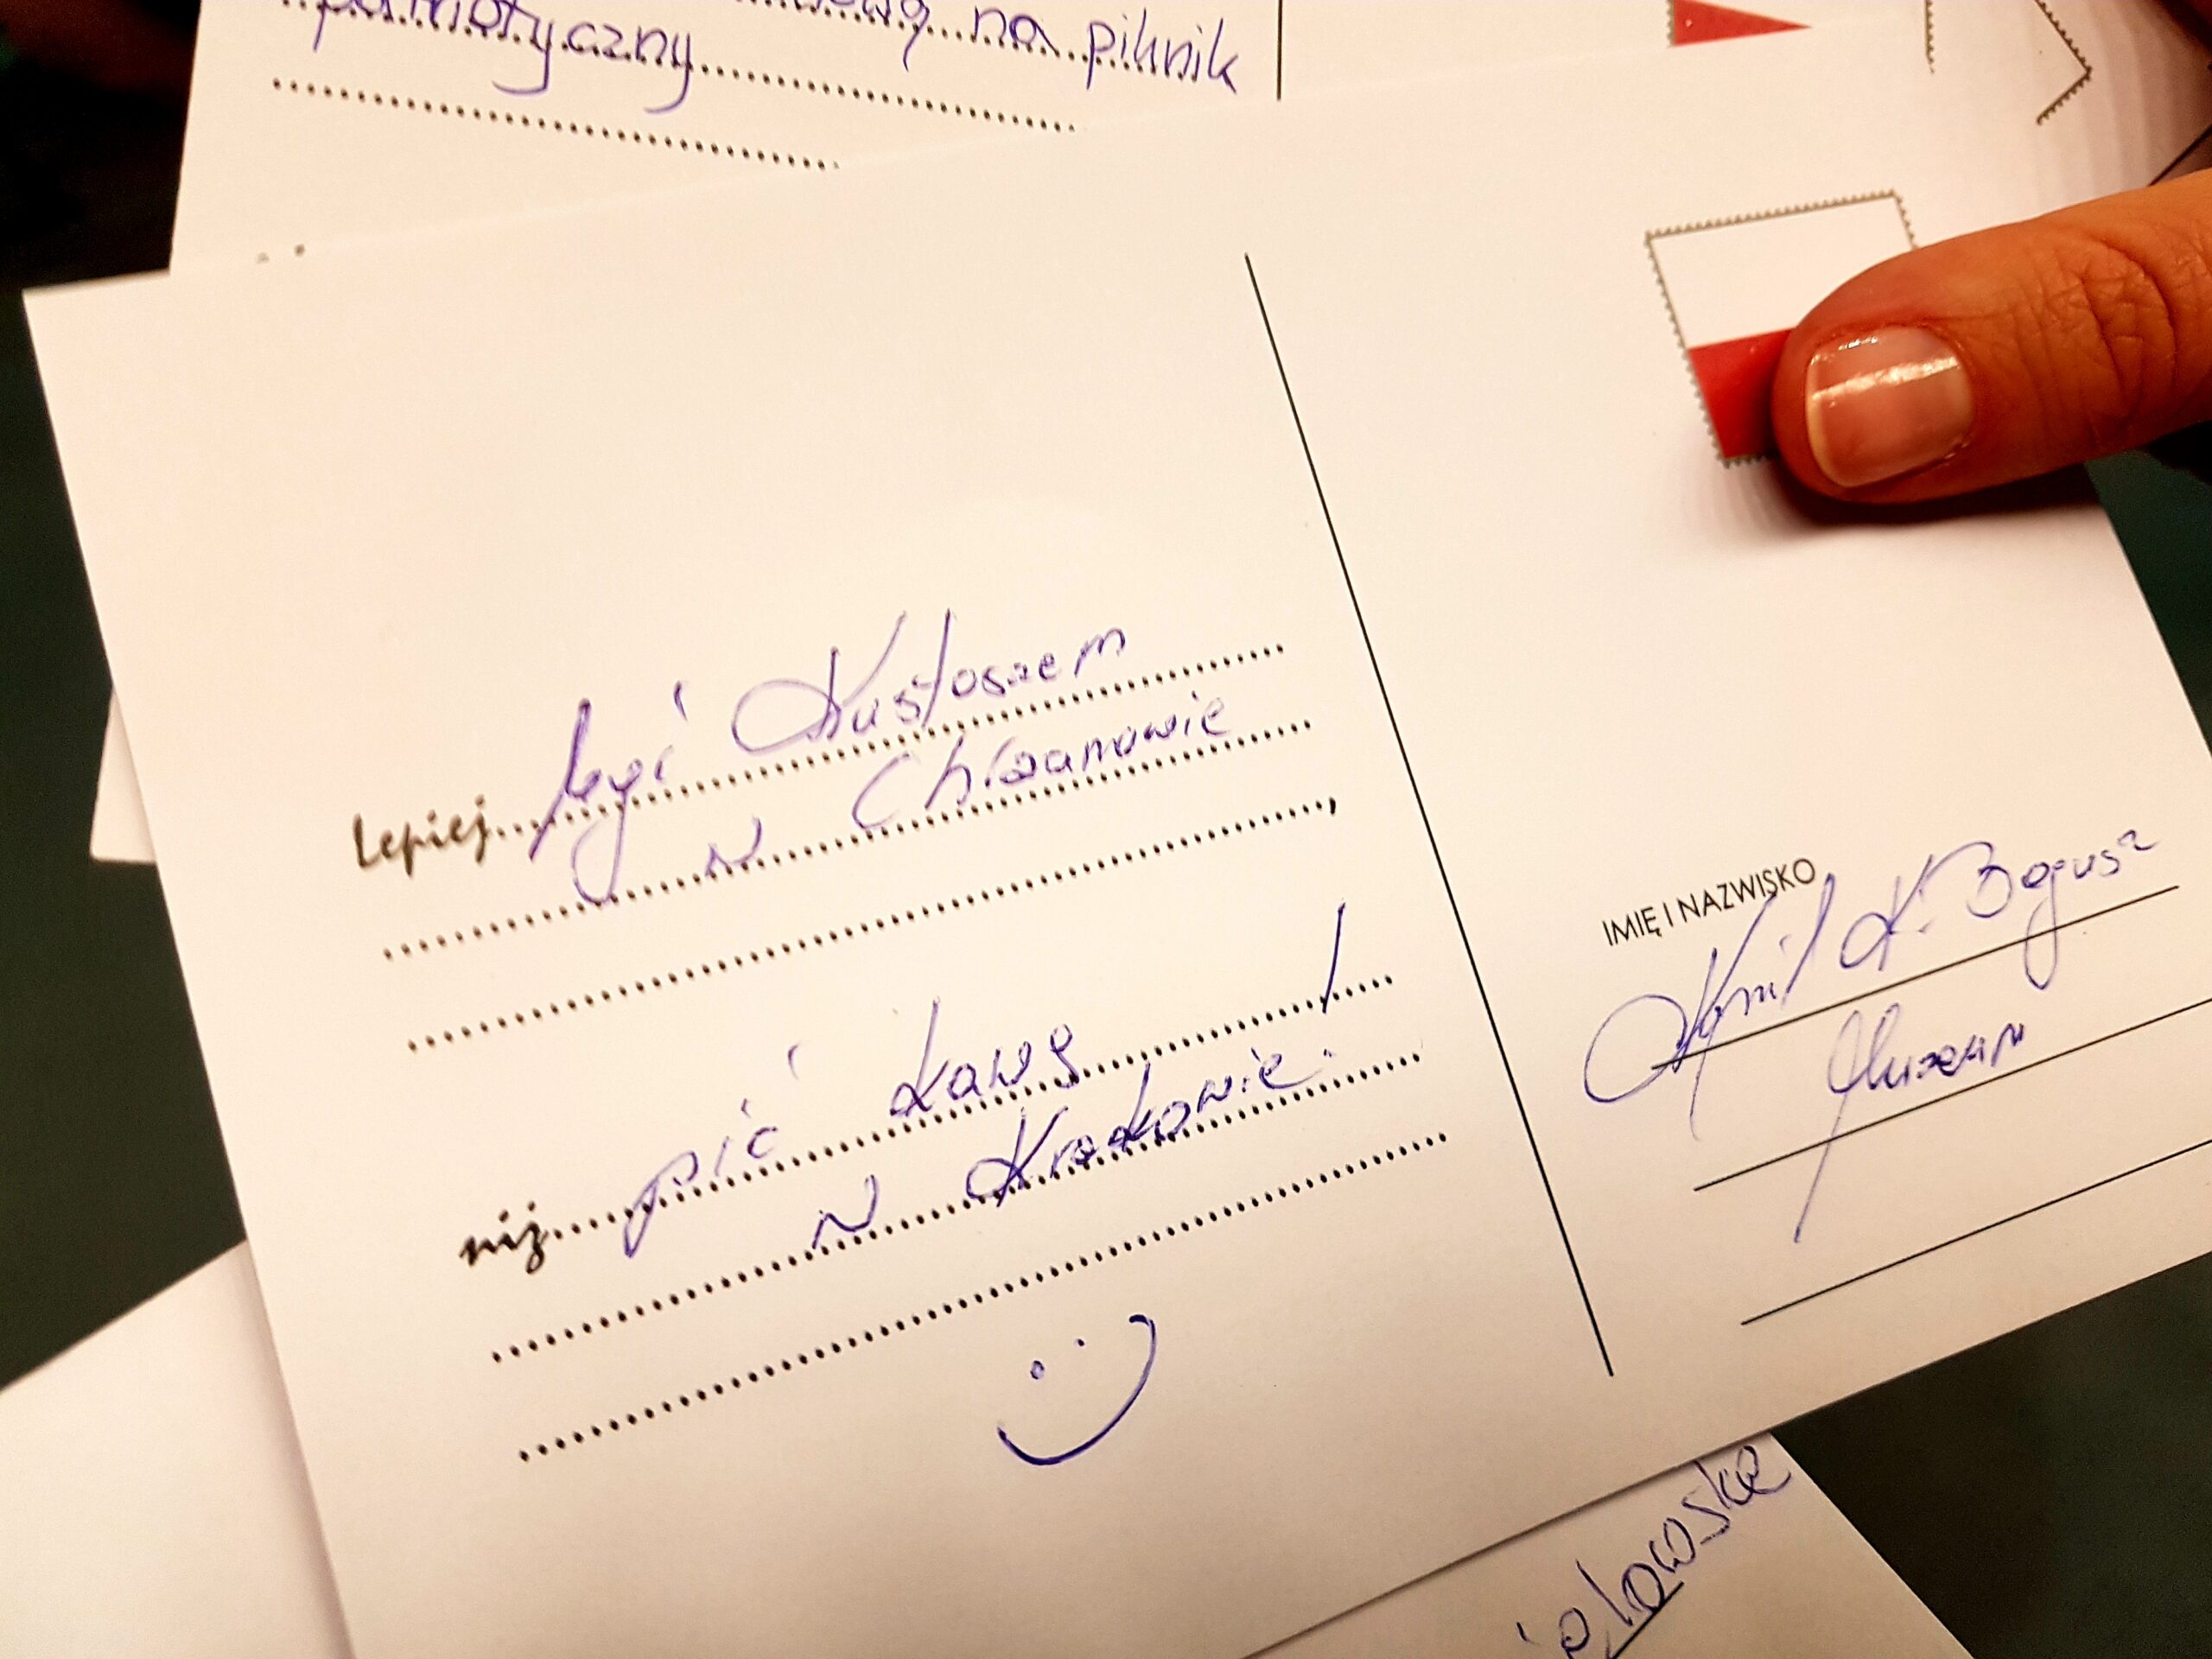 na piknik
patriotyczny
Lepiej być Kustoszem
w Chrzanowie
,
niż pić kawę
w Krakowie.
IMIĘ I NAZWISKO
Kamil K. Bogusz
Muzeum